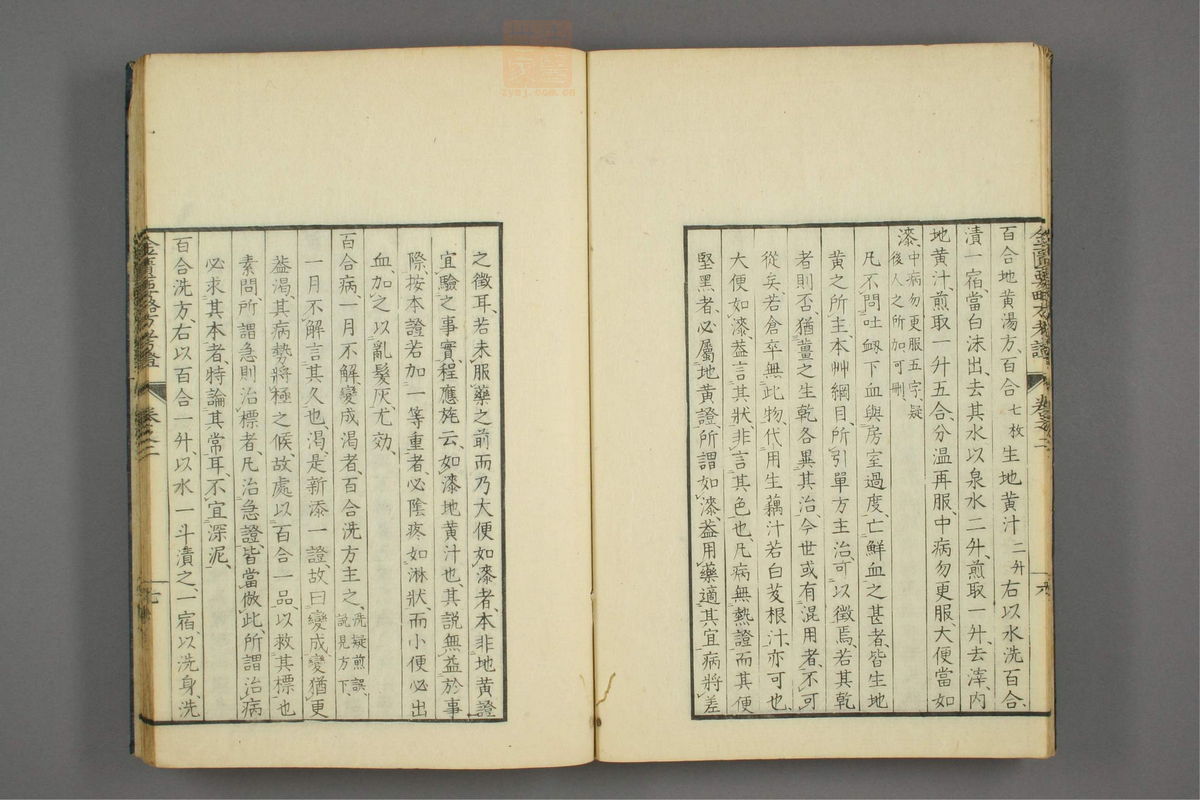 金匱要略方考證
卷之二
六
百合地黃湯方、百合七枚生地黃汁二升右以水洗百合、
漬一宿當白沫出、去其水以泉水二升、煎取一升、去滓、內
地黃汁、煎取一升五合、分溫再服、中病勿更服、大便當如
漆、中病勿更服五字、疑
後人之所加、可刪、
凡不問吐衂下血與房室過度、亡鮮血之甚者、皆生地
黃之所主、本艸綱目、所引單方主治、可以徵焉、若其乾
者則否、猶薑之生乾各異其治、今世或有混用者、不可
從矣、若倉卒無此物、代用生藕汁若白芨根汁、亦可也、
大便如漆、葢言其狀、非言其色也、凡病無熱證而其便
堅黑者、必屬地黃證、所謂如漆、葢用藥適其宜病將差
之徵耳、若未服藥之前而乃大便如漆者、本非地黃證
宜驗之事實、程應旄云、如漆地黃汁也、其說無益於事
際、按本證若加一等重者、必陰疼如淋狀、而小便必出
血、加之以亂髮灰、尤効、
百合病、一月不解、變成渴者、百合洗方主之、洗疑煎誤、
說見方下、
一月不解、言其久也、渴、是新添一證、故曰變成、變猶更
葢渴、其病勢將極之候、故處以百合一品、以救其標也
素問、所謂急則治標者、凡治急證、皆當倣此、所謂治病
必求其本者、特論其常耳、不宜深泥、
百合洗方、右以百合一升、以水一斗漬之、一宿、以洗身、洗
金匱要略方考證
卷之二
七
zysj.com.cn